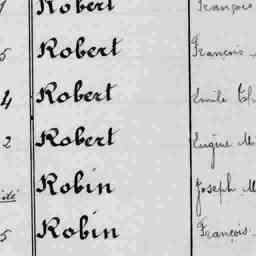 Robert François
5 Robert Francois
4 Robert Emile
2 Robert Eugène M
Robin Joseph M
5 Robin François